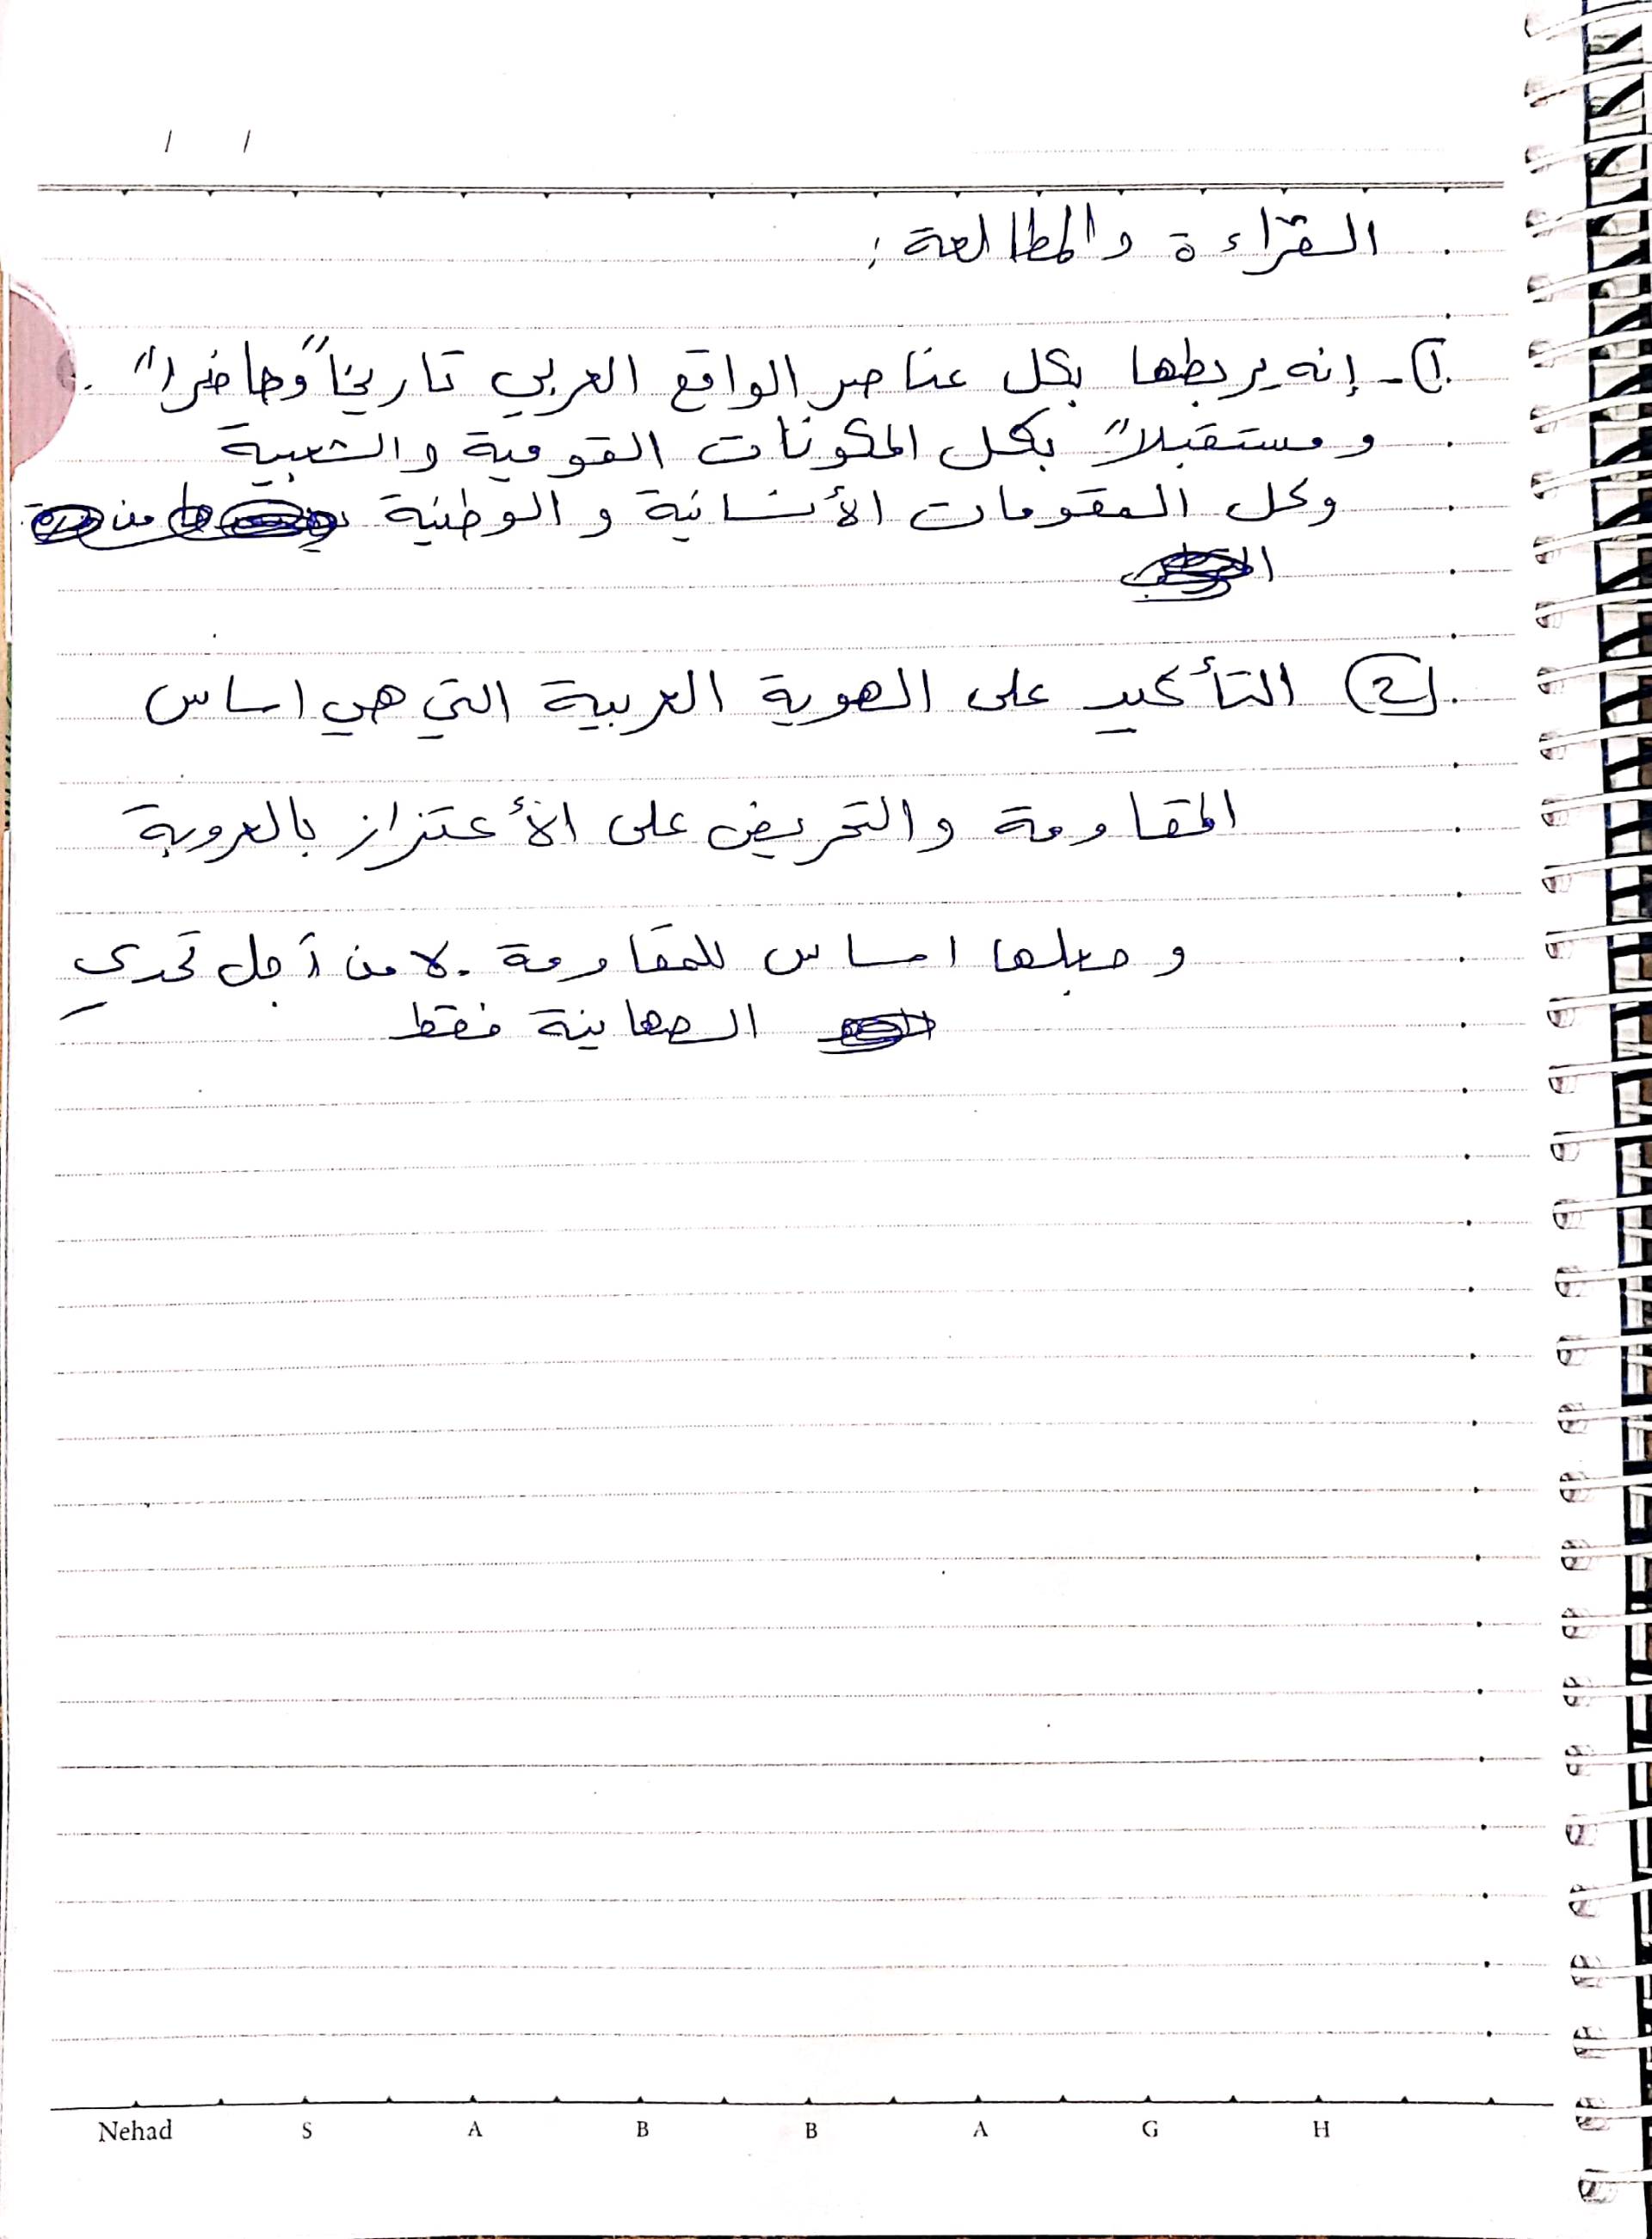 / /
القرّاءة والمطالعة :
١- إنه يربطها بكل عناصر الواقع العربي تاريخاً وحاضراً
ومستقبلاً بكل المكونات القومية والشعبية
وكل المقومات الأنسانية والوطنية من
٢ التأكيد على الهوية العربية التي هي اساس
المقاومة والتحريض على الأعتزاز بالعروبة
وجعلها اساس للمقاومة . لا من أجل تحدي
الصهاينة فقط
Nehad S A B B A G H